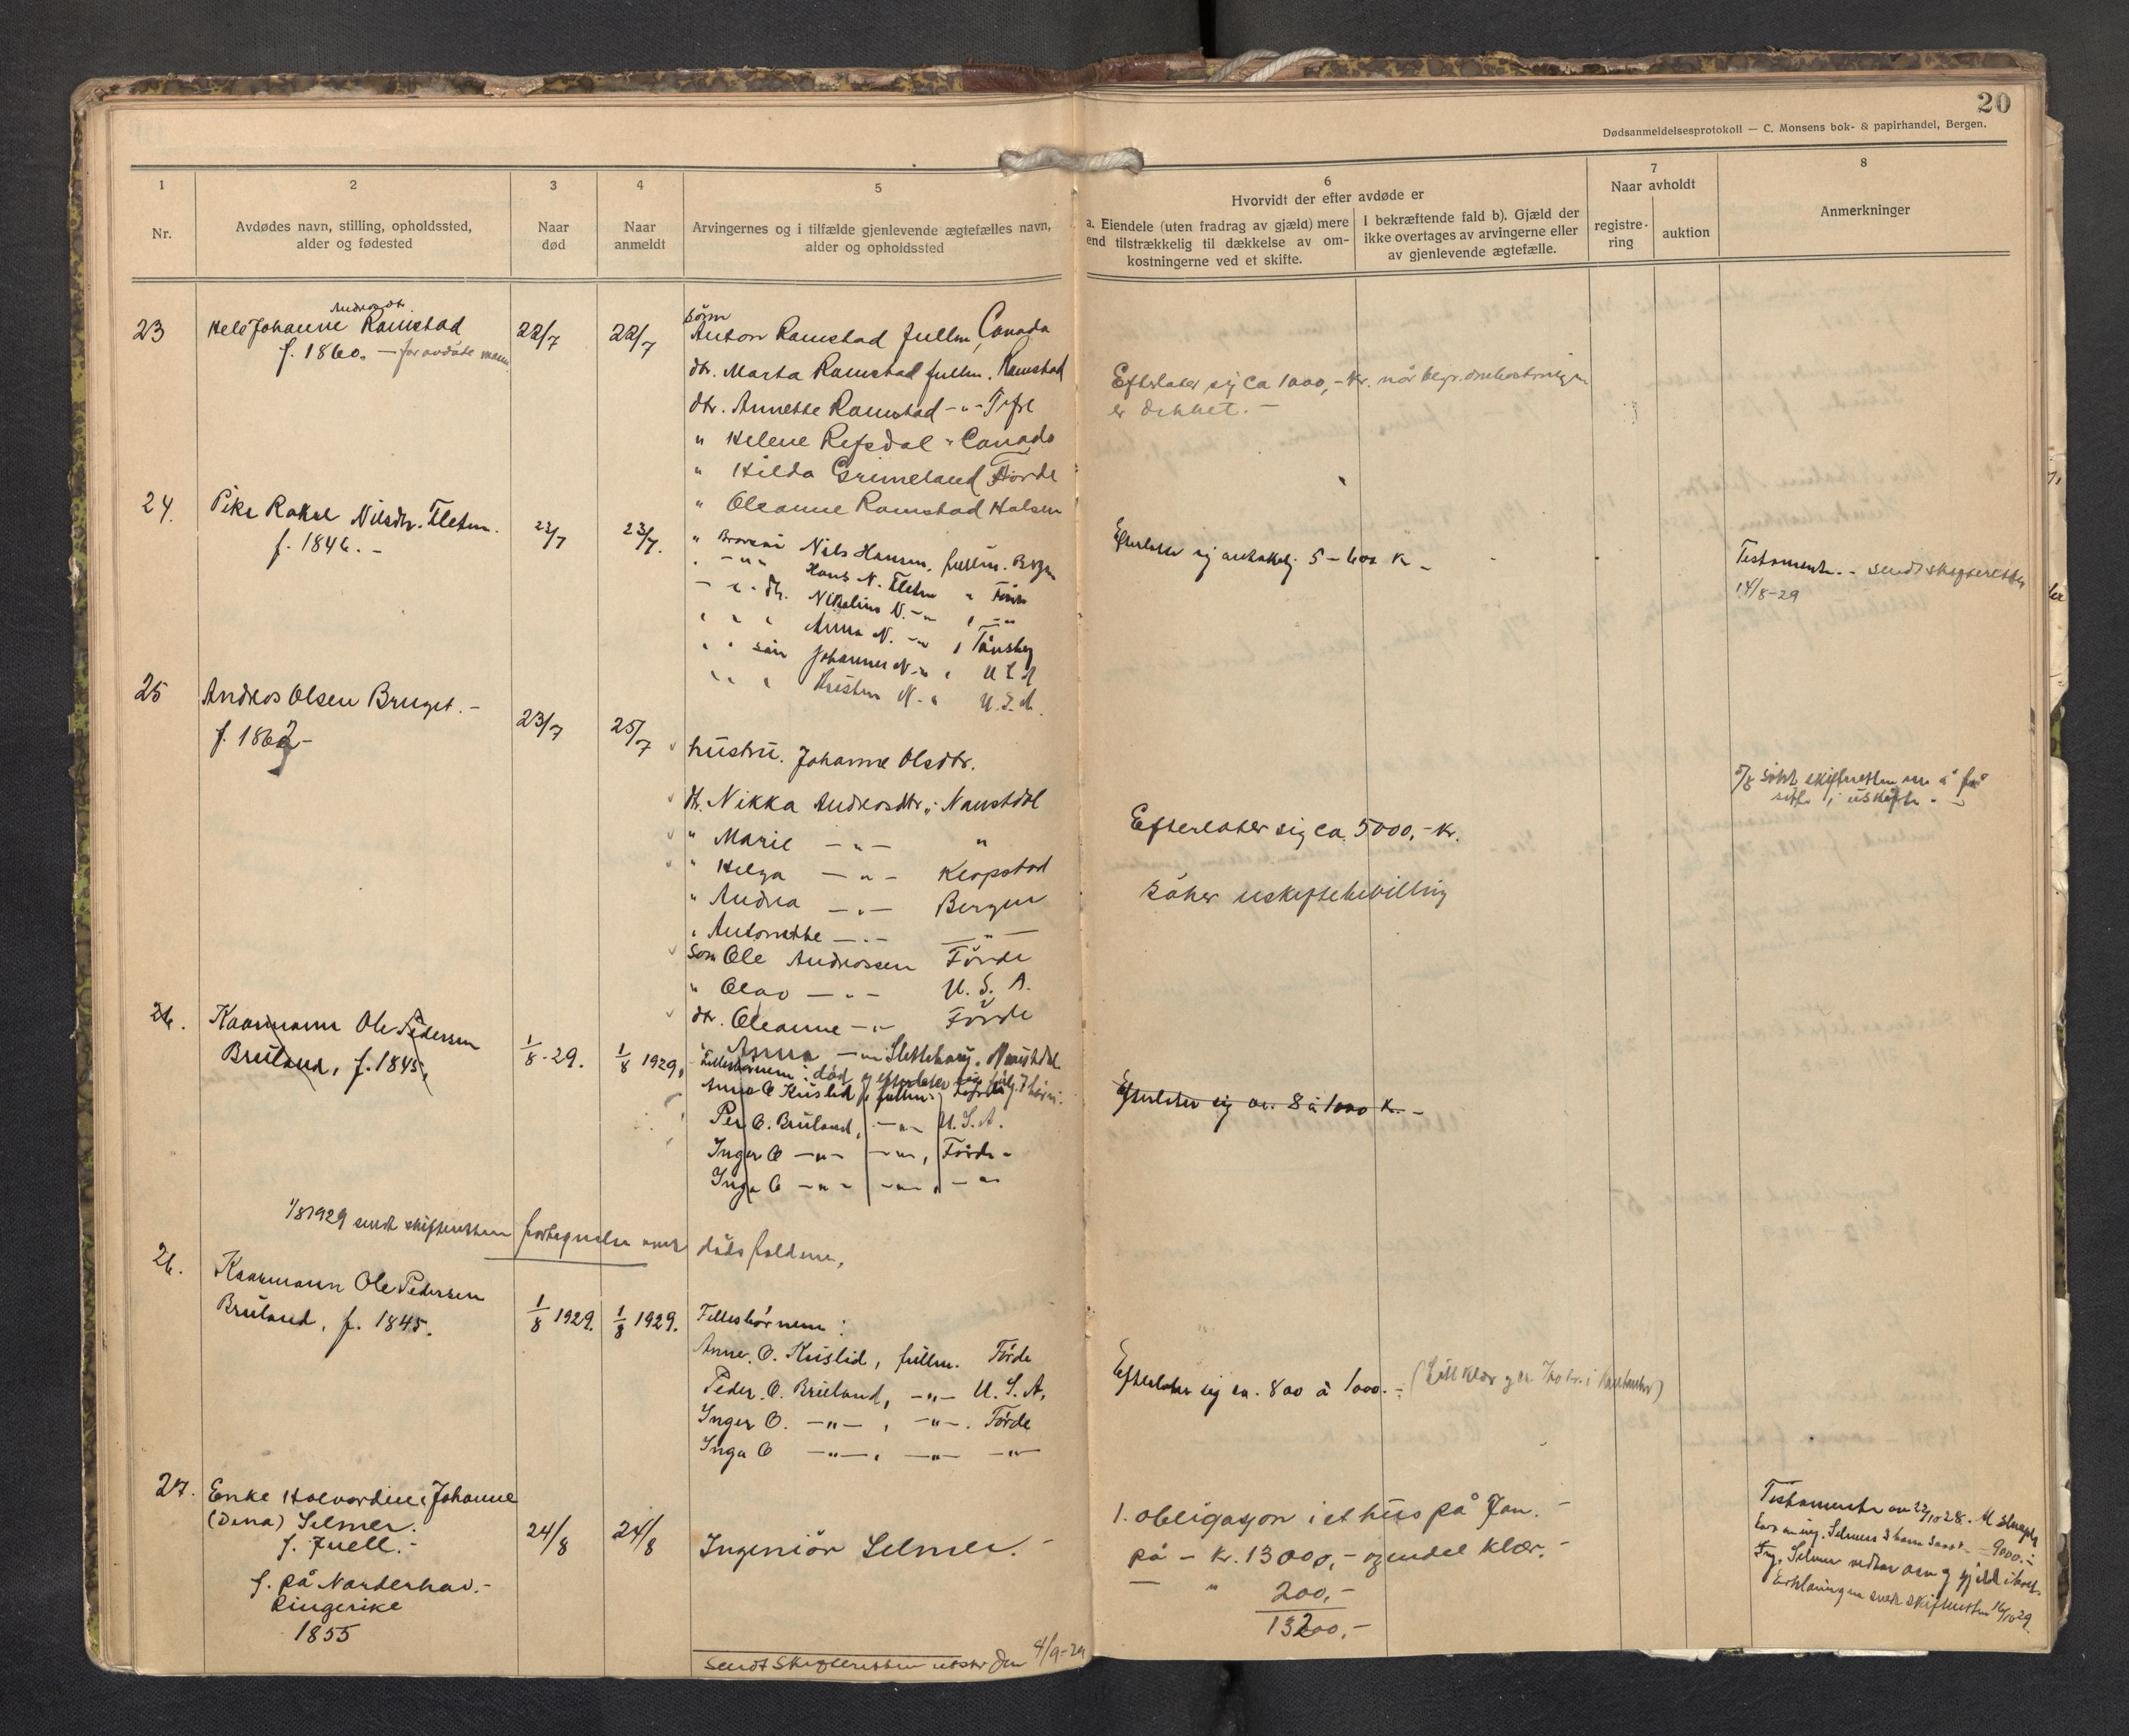 20
Dødsanmeldelsesprotokoll — C. Monsens bok- & papirhandel, Bergen.
1
Nr.
2
Avdødes navn, stilling, opholdssted,
alder og fødested
3
Naar
død
4
Naar
anmeldt
5
Arvingernes og i tilfælde gjenlevende ægtefælles navn,
alder og opholdssted
6
Hvorvidt der efter avdøde er
a. Eiendele (uten fradrag av gjæld) mere
end tilstrækkelig til dækkelse av om-
kostningerne ved et skifte.
I bekræftende fald b). Gjæld der
ikke overtages av arvingerne eller
av gjenlevende ægtefælle.
7
Naar avholdt
registre-
ring
auktion
8
Anmerkninger
23
Johanne Ramstad
f. 1860. —
22/7
22/7
søn
Anton Ramstad fullm, Canada
dtr. Marta Ramstad fullm. Ramstad
dtr. Annette Ramstad -"-
" Helene Refsdal " Canada
" Hilda Grimeland Førde
" Oleanne Ramstad Halsen
Efterlater sig ca 1000,- kr. når begr.omkostningen
er dekket. -
24.
Pike Rakel Nilsdtr. Fleten.
f. 1846. -
23/7
23/7.
" Nils Hansen, fullm. Bergen
Hans N. Fleten "
Nikoline N. -"-
Anna N. -"- , Tønsberg
søn Johannes N -"- U S A
Kristen N. " U.S.A.
Efterlater sig 5 - 600 kr -
Testamente. - sendt skifteretten
14/8-29
25
Andreas Olsen Bruget. -
f. 1862 -
23/7
25/7
hustru. Johanne Olsdtr.
dt. Nikka Andreasdtr. Naustdal
" Marie -"- "
" Helga -"- Klopstad
" Andrea -"- Bergen
" Antonette -"- -"-
søn Ole Andreassen Førde
" Olav -"- U. S. A.
dtr. Oleanne -"- Førde
" Anna -"- Naustdal
Efterlater sig ca. 5000,- kr.
Søker uskiftebevilling
søkt skifteretten om å få
sitte i uskifte. -
26.
Kaarmann Ole Pedersen
Bruland, f. 1845,
1/8-29.
1/8 1929,
Anne O Kuslid, fullm.
Per O. Bruland, -"- U. S. A.
Inger O -"- -"-, Førde -
Inga O -"- -"- -"-
Efterlater sig ca. 8 à 1000 Kr. -
1/8 1929 sendt skifteretten fortegnelse over dødsfaldene,
26.
Kaarmann Ole Pedersen
Bruland, f. 1845.
1/8 1929.
1/8 1929.
Fellesbørnene:
Anne. O. Kuslid, fullm. Førde
Peder. O. Bruland, -"- U. S. A.
Inger O. -"- , -"-. Førde
Inga O -"- , -"- -"-
Efterlater sig ca. 800 à 1000. -
27.
Enke Halvardine Johanne
(Dina) Selmer.
f. Juell. -
f. på Norderhov. -
Ringerike
1855
24/8
24/8
Ingeniør Selmer. -
1. obligasjon i et hus på Jan. -
på - kr. 13000,- og endel klær. -
— " 200,-
13200,-
Testamente av 22/10 28.
sendt skifteretten 16/10 29.
Sendt Skifteretten utskr den 4/9-29